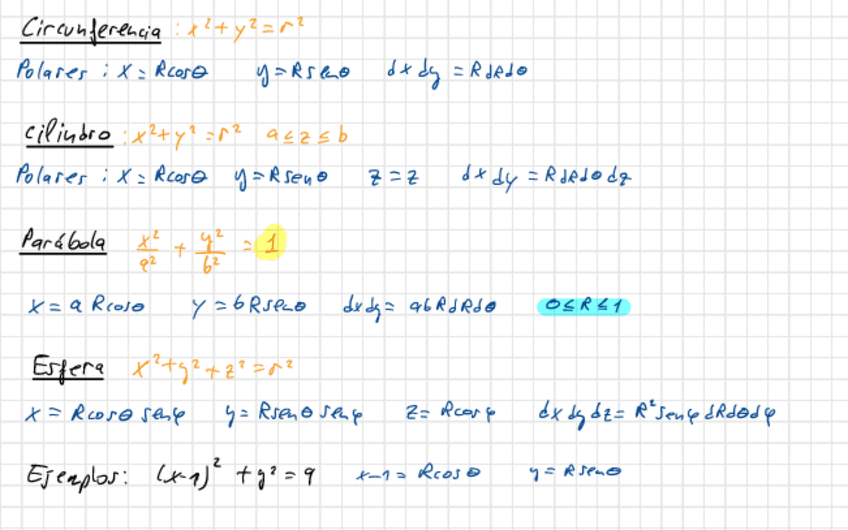 Circunferencia : x²+y²=r²
Polares : x = Rcosθ y = Rsenθ dxdy = RdRdθ
Cilindro : x²+y²=r² a≤z≤b
Polares : x = Rcosθ y = Rsenθ z = z dxdy = RdRdθdz
Parábola x²/a² + y²/b² = 1
x = a Rcosθ y = bRsenθ dxdy = abRdRdθ 0≤R≤1
Esfera x²+y²+z²=r²
x = Rcosθ senφ y = Rsenθ senφ z = Rcosφ dxdydz = R²senφdRdθdφ
Ejemplos: (x-1)² + y² = 9 x-1 = Rcosθ y = Rsenθ